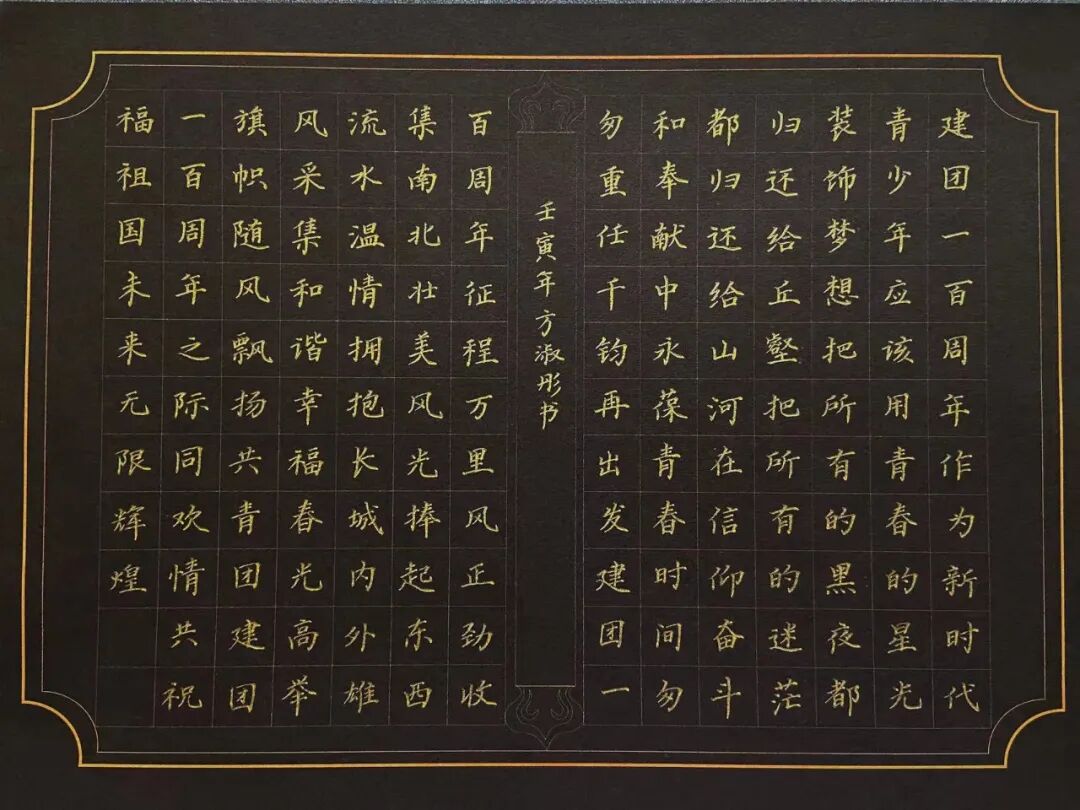 建团一百周年作为新时代
青少年应该用青春的星光
装饰梦想把所有的黑夜都
归还给丘壑把所有的迷茫
都归还给山河在信仰奋斗
和奉献中永葆青春时间匆
匆重任千钧再出发建团一
壬寅年方淑彤书
百周年征程万里风正劲收
集南北壮美风光捧起东西
流水温情拥抱长城内外雄
风采集和谐幸福春光高举
旗帜随风飘扬共青团建团
一百周年之际同欢情共祝
福祖国未来无限辉煌